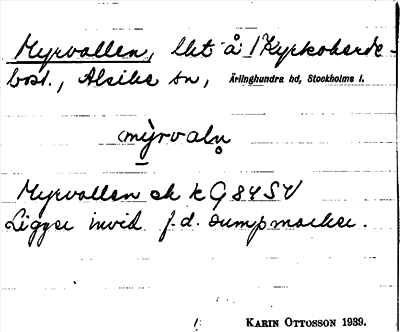 Myrvallen, lht å 1 Kyrkoherde-
bost., Alsike sn, Ärlinghundra hd, Stockholms l.
mỳrvaln̥
Myrvallen ek k G 84 SV
Ligger invid f.d. sumpmarker.
KARIN OTTOSSON 1939.